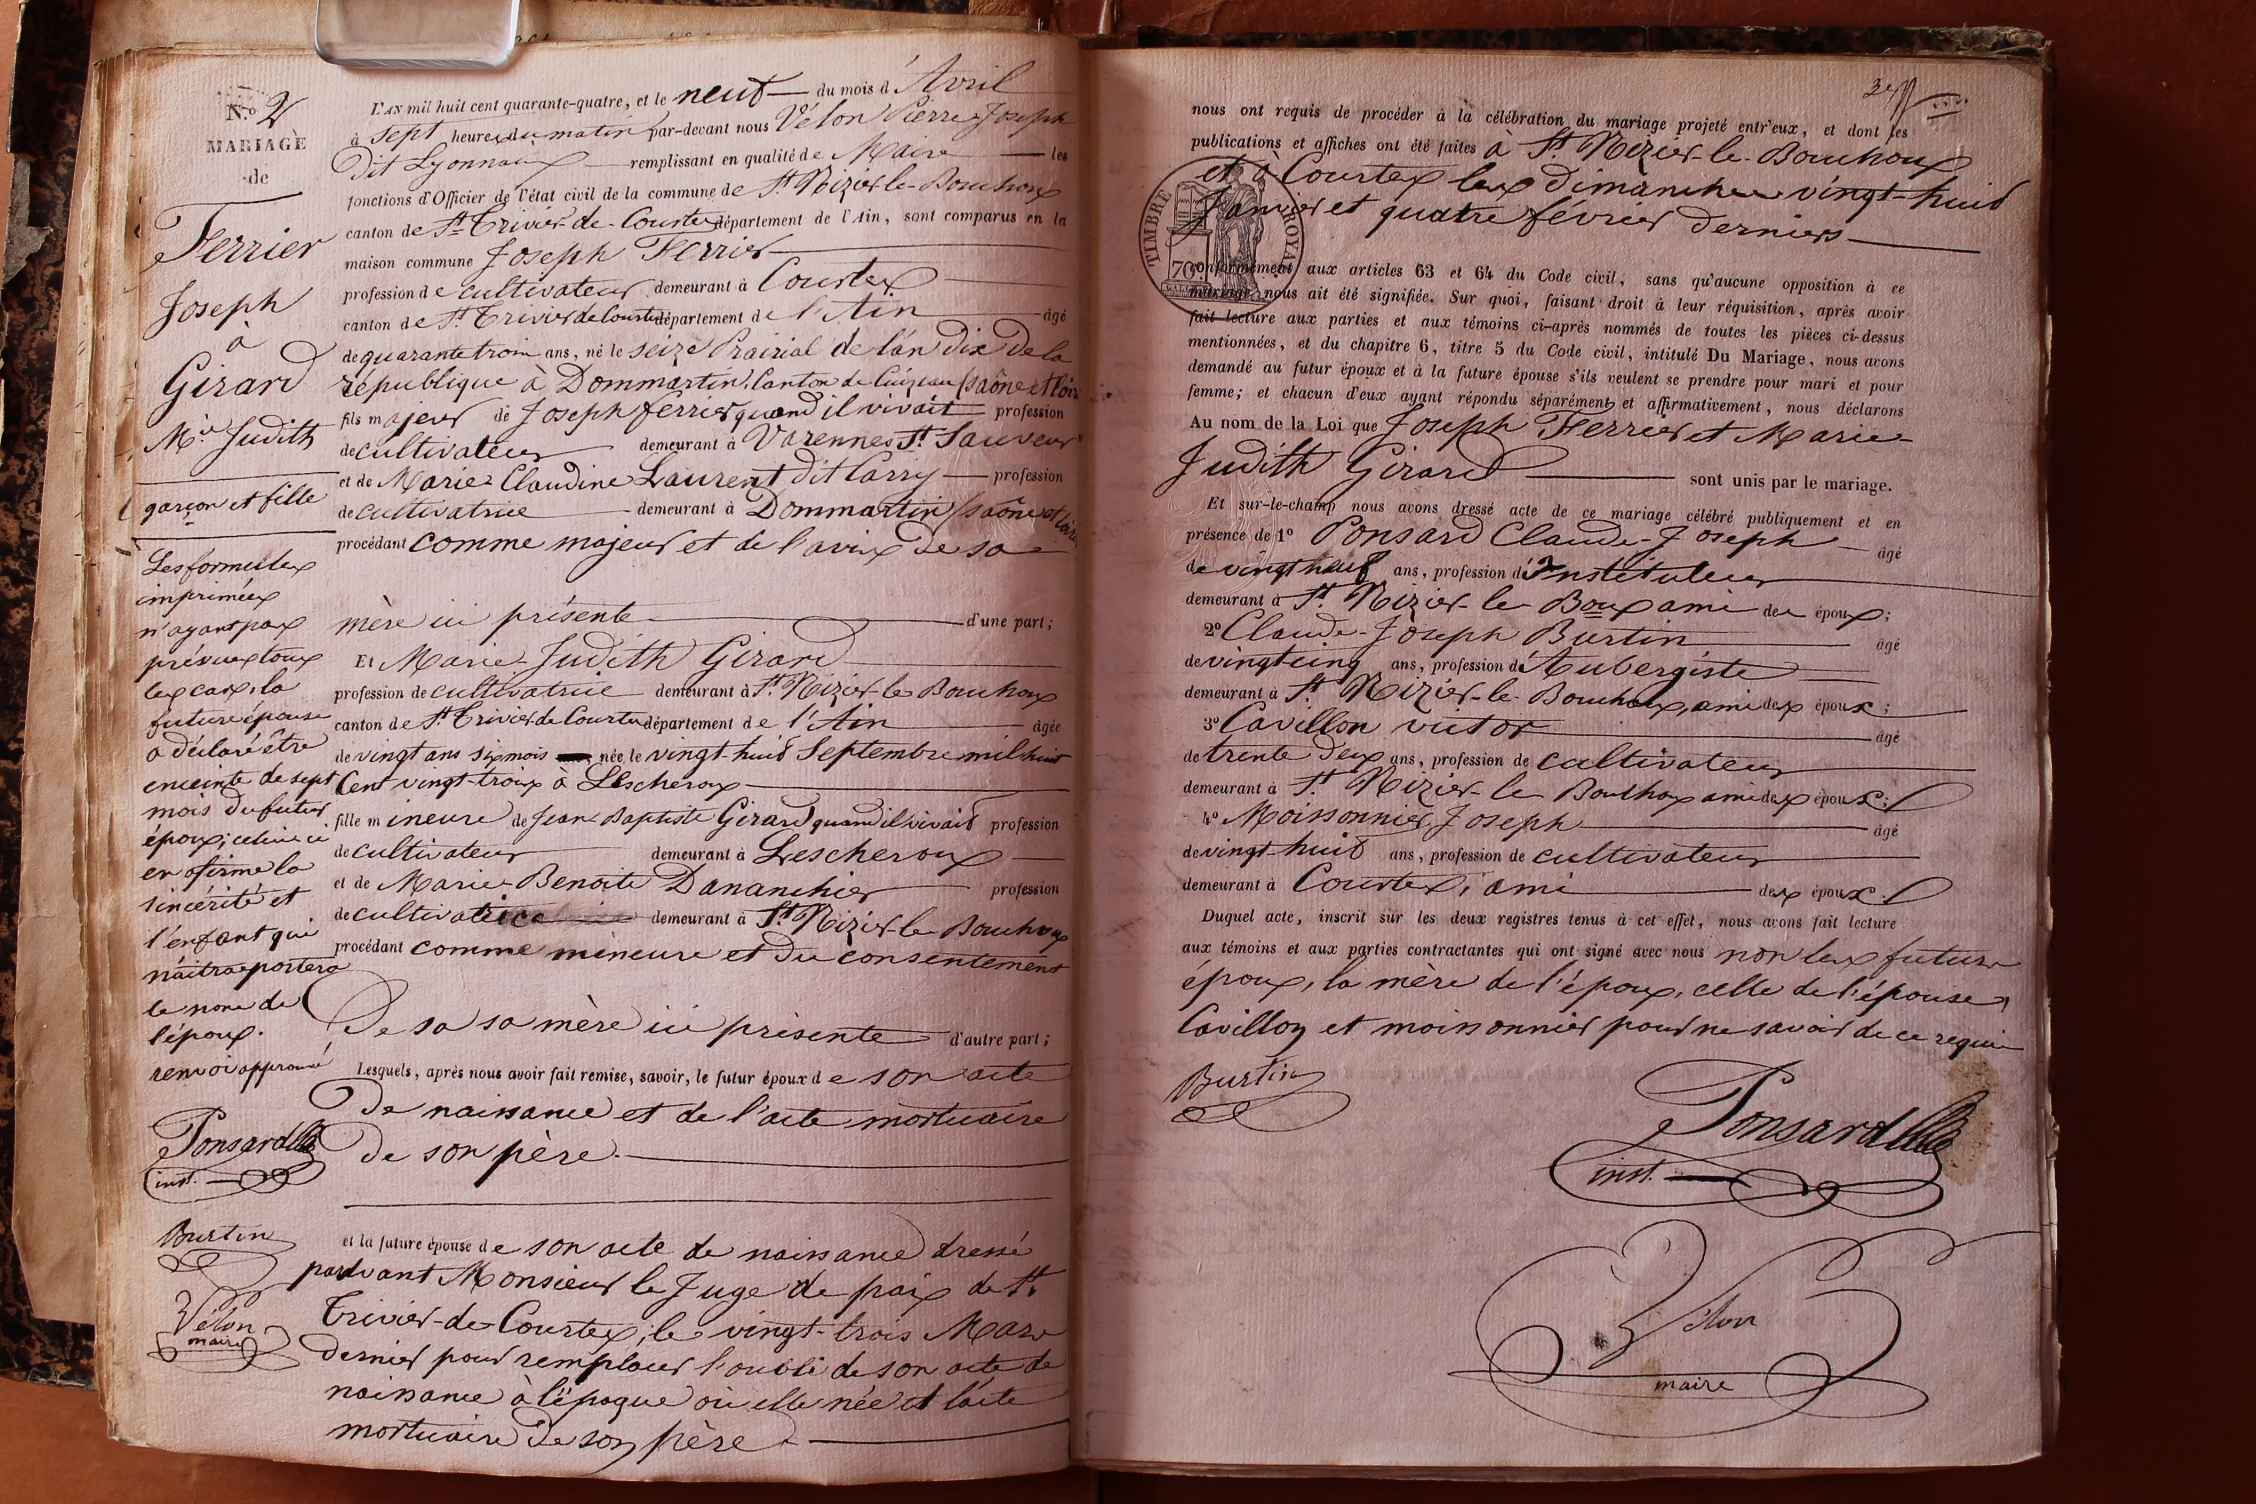 N.o 2
MARIAGE
de
Ferrier
Joseph
à
Girard
M.ie Judith
garçon et fille
Les formules
imprimées
n'ayant pas
prévues tous
les cas, la
future épouse
a déclaré être
enceinte de sept
mois du futur
époux; celui ci
en afirme la
sincérité et
l'enfant qui
naîtra portera
le nom de
l'époux.
renvoi approuvé
Ponsard
inst.
Burtin
Vélon
maire
L'AN mil huit cent quarante-quatre, et le neuf du mois d'Avril
à sept heures du matin par-devant nous Vélon Pierre Joseph
dit Lyonnais remplissant en qualité de Maire les
fonctions d'Officier de l'état civil de la commune de St Nizier-le-Bouchoux
canton de St Trivier-de-Courtes département de l'Ain, sont comparus en la
maison commune Joseph Ferrier
profession de cultivateur demeurant à Courtes
canton de St Trivier de Courtes département de l'Ain âgé
de quarante trois ans, né le seize Prairial de l'an dix de la
république à Dommartin, Canton de Cuizeau (saône et loire
fils majeur de Joseph ferrier quand il vivait profession
de cultivateur demeurant à Varennes St. Sauveur
et de Marie Claudine Laurent dit Carry profession
de cultivatrice demeurant à Dommartin (saône et loire
procédant comme majeur et de l'avis de sa
mère ici présente d'une part;
Et Marie-Judith Girard
profession de cultivatrice demeurant à St. Nizier-le Bouchoux
canton de St. Trivier de Courtes département de l'Ain âgée
de vingt ans six mois née le vingt-huit Septembre mil huit
Cent vingt-trois à Lescheroux
fille mineure de Jean Baptiste Girard quand il vivait profession
de cultivateur demeurant à Lescheroux
et de Marie-Benoite Dananchier profession
de cultivatrice demeurant à St Nizier-le Bouchoux
procédant comme mineure et du consentement
De sa sa mère ici présente d'autre part;
Lesquels, après nous avoir fait remise, savoir, le futur époux de son acte
De naissance et de l'acte mortuaire
De son père.
et la future épouse de son acte de naissance dressé
pardvant Monsieur le Juge de paix de St
Trivier-de-Courtes, le vingt-trois Mars
dernier pour remplacer l'oubli de son acte de
naissance à l'époque où elle née et l'acte
mortuaire de son père
nous ont requis de procéder à la célébration du mariage projeté entr'eux, et dont les
publications et affiches ont été faites à St. Nizier-le-Bouchoux
et à Courtes les dimanches vingt-huit
Janvier et quatre février derniers
TIMBRE ROYAL
70c
conformément aux articles 63 et 64 du Code civil, sans qu'aucune opposition à ce
mariage nous ait été signifiée. Sur quoi, faisant droit à leur réquisition, après avoir
fait lecture aux parties et aux témoins ci-après nommés de toutes les pièces ci-dessus
mentionnées, et du chapitre 6, titre 5 du Code civil, intitulé Du Mariage, nous avons
demandé au futur époux et à la future épouse s'ils veulent se prendre pour mari et pour
femme; et chacun d'eux ayant répondu séparément et affirmativement, nous déclarons
Au nom de la Loi que Joseph Ferrier et Marie-
Judith Girard sont unis par le mariage.
Et sur-le-champ nous avons dressé acte de ce mariage célébré publiquement et en
présence de 1o Ponsard Claude-Joseph âgé
de vingt neuf ans, profession d'Instituteur
demeurant à St. Nizier-le Boux ami des époux;
2o Claude-Joseph Burtin âgé
de vingt cinq ans, profession d'Aubergiste
demeurant à St. Nizier-le-Bouchoux, ami des époux;
3o Cavillon victor âgé
de trente deux ans, profession de cultivateur
demeurant à St. Nizier-le Bouchoux ami des époux;
4o Moissonnier, Joseph âgé
de vingt-huit ans, profession de cultivateur
demeurant à Courtes, ami des époux.
Duquel acte, inscrit sur les deux registres tenus à cet effet, nous avons fait lecture
aux témoins et aux parties contractantes qui ont signé avec nous non les futurs
époux, la mère de l'époux, celle de l'épouse,
Cavillon et moissonnier pour ne savoir de ce requis
Burtin
Ponsard
inst.
Vélon
maire